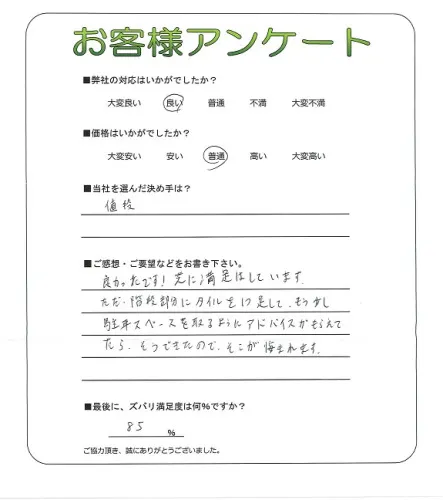 お客様アンケート
■弊社の対応はいかがでしたか?
大変良い 良い 普通 不満 大変不満
■価格はいかがでしたか?
大変安い 安い 普通 高い 大変高い
■当社を選んだ決め手は?
値段
■ご感想・ご要望などをお書き下さい。
良かったです! 満足はしています.
ただ、階段部分にタイルを 足して、もう少し
駐車スペースを取るようにアドバイスがもらえて
たら、そうできたので、そこが悔まれます.
■最後に、ズバリ満足度は何%ですか?
85 %
ご協力頂き、誠にありがとうございました。